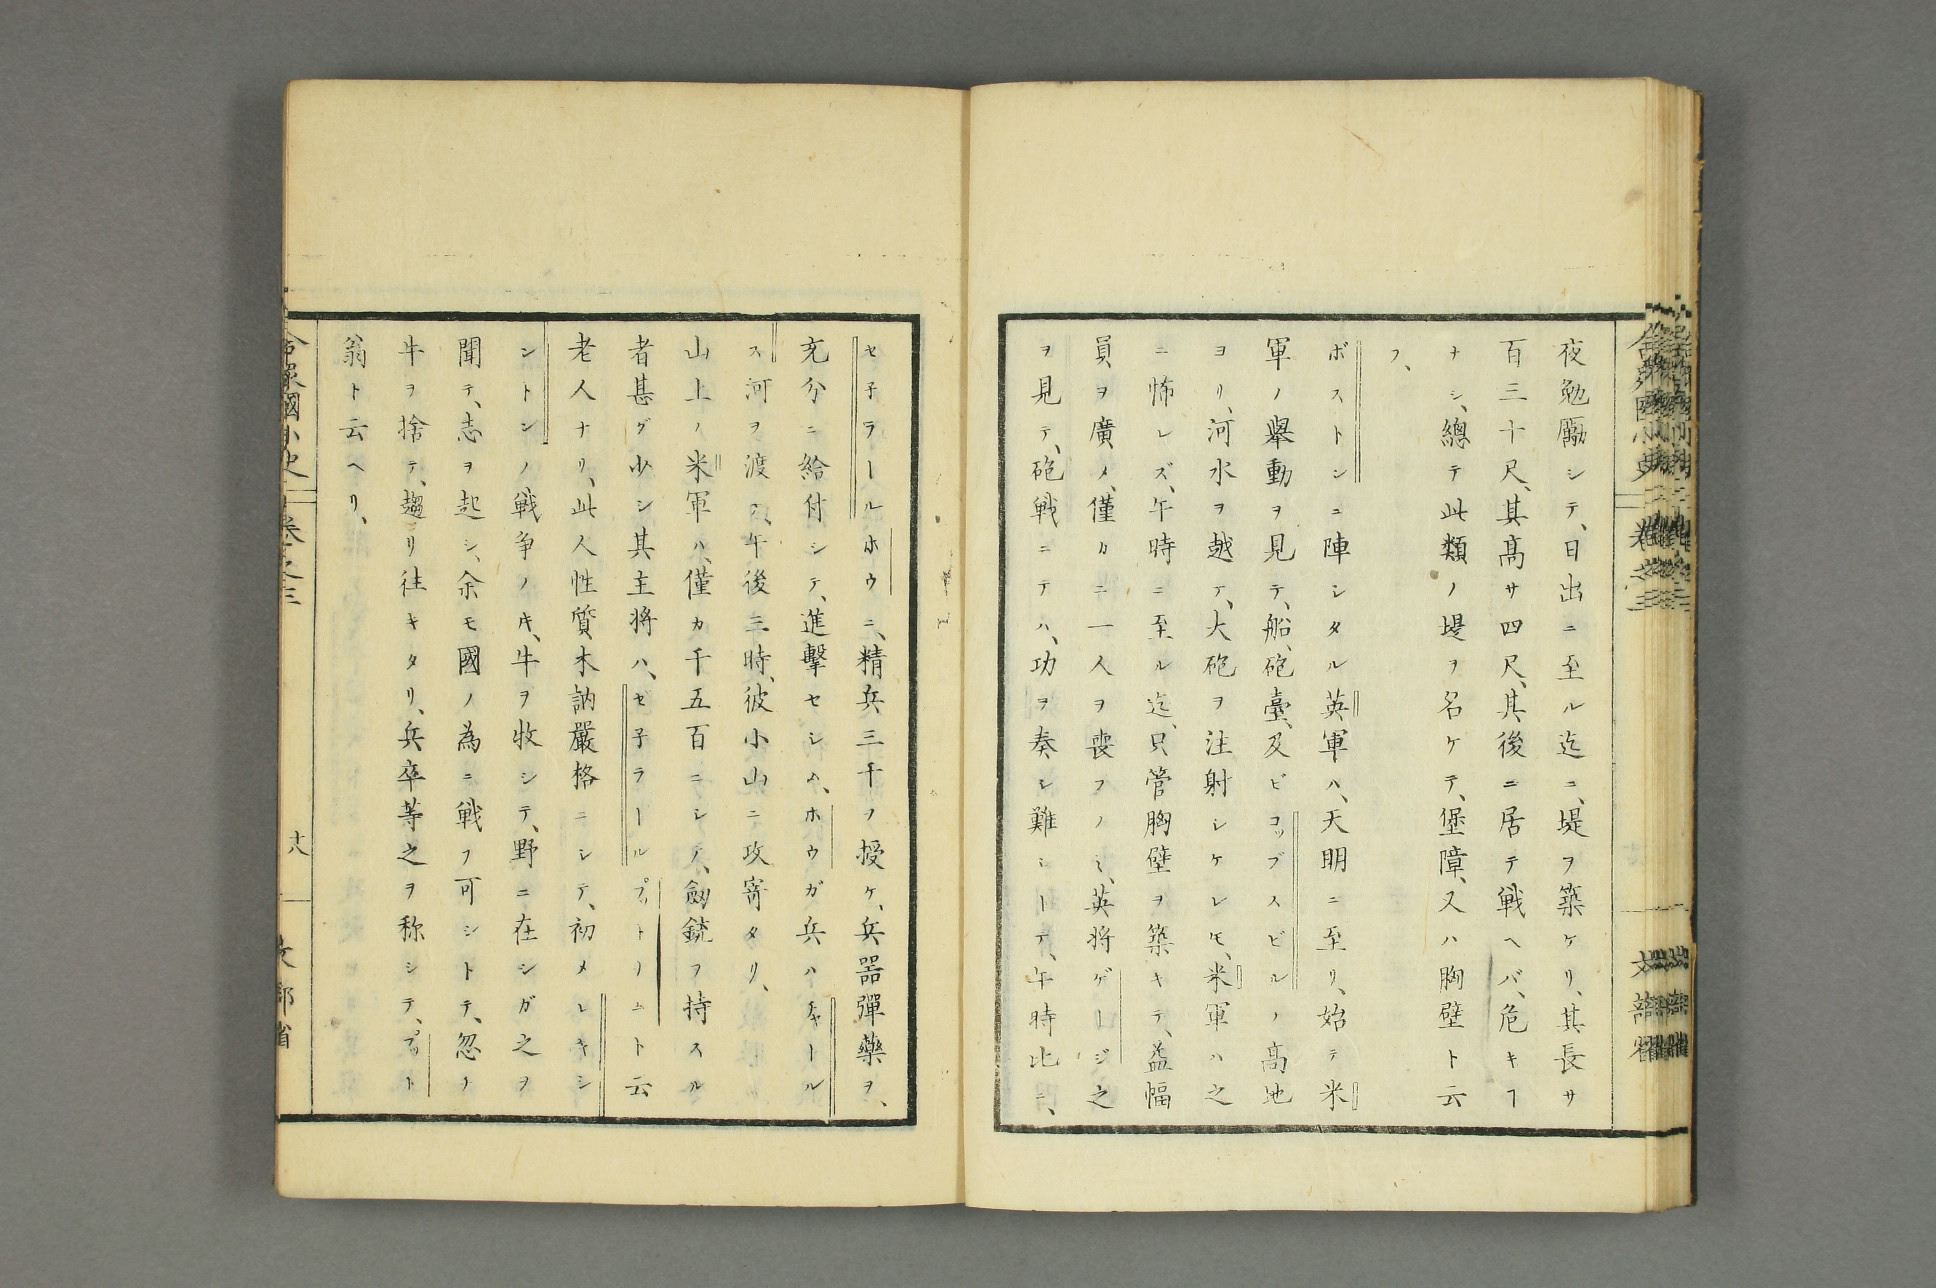 夜勉勵シテ、日出ニ至ル迄ニ、堤ヲ築ケリ、其長サ
百三十尺、其高サ四尺、其後ニ居テ戦ヘバ、危キヿ
ナシ、總テ此類ノ堤ヲ名ケテ、堡障、又ハ胸壁ト云
フ、
ボストンニ陣シタル英軍ハ、天明ニ至リ、始テ米
軍ノ擧動ヲ見テ、船、砲臺、及ビコッブスビルノ高地
ヨリ、河水ヲ越テ、大砲ヲ注射シケレモ、米軍ハ之
ニ怖レズ、午時ニ至ル迄、只管胸壁ヲ築キテ、益幅
員ヲ廣メ、僅カニ一人ヲ喪フノミ、英将ゲージ之
ヲ見テ、砲戦ニテハ、功ヲ奏シ難シーテ、午時比ニ、
セ子ラールホウニ、精兵三千ヲ授ケ、兵器彈藥ヲ、
充分ニ給付シテ、進擊セシム、ホウガ兵ハチャール
ス河ヲ渡ス、午後三時、彼小山ニ攻寄タリ、
山上ノ米軍ハ、僅カ千五百ニシテ、劔銃ヲ持スル
者甚ダ少シ其主将ハ、セ子ラールプットノムト云
老人ナリ、此人性質木訥嚴格ニシテ、初メレキシ
ントンノ戦争ノ𪜈、牛ヲ牧シテ、野ニ在シガ之ヲ
聞テ、志ヲ起シ、余モ國ノ為ニ戦フ可シトテ、忽チ
牛ヲ捨テ、趨リ往キタリ、兵卒等之ヲ称シテ、プット
翁ト云ヘリ、
合衆國小史 卷之三 十八 文部省